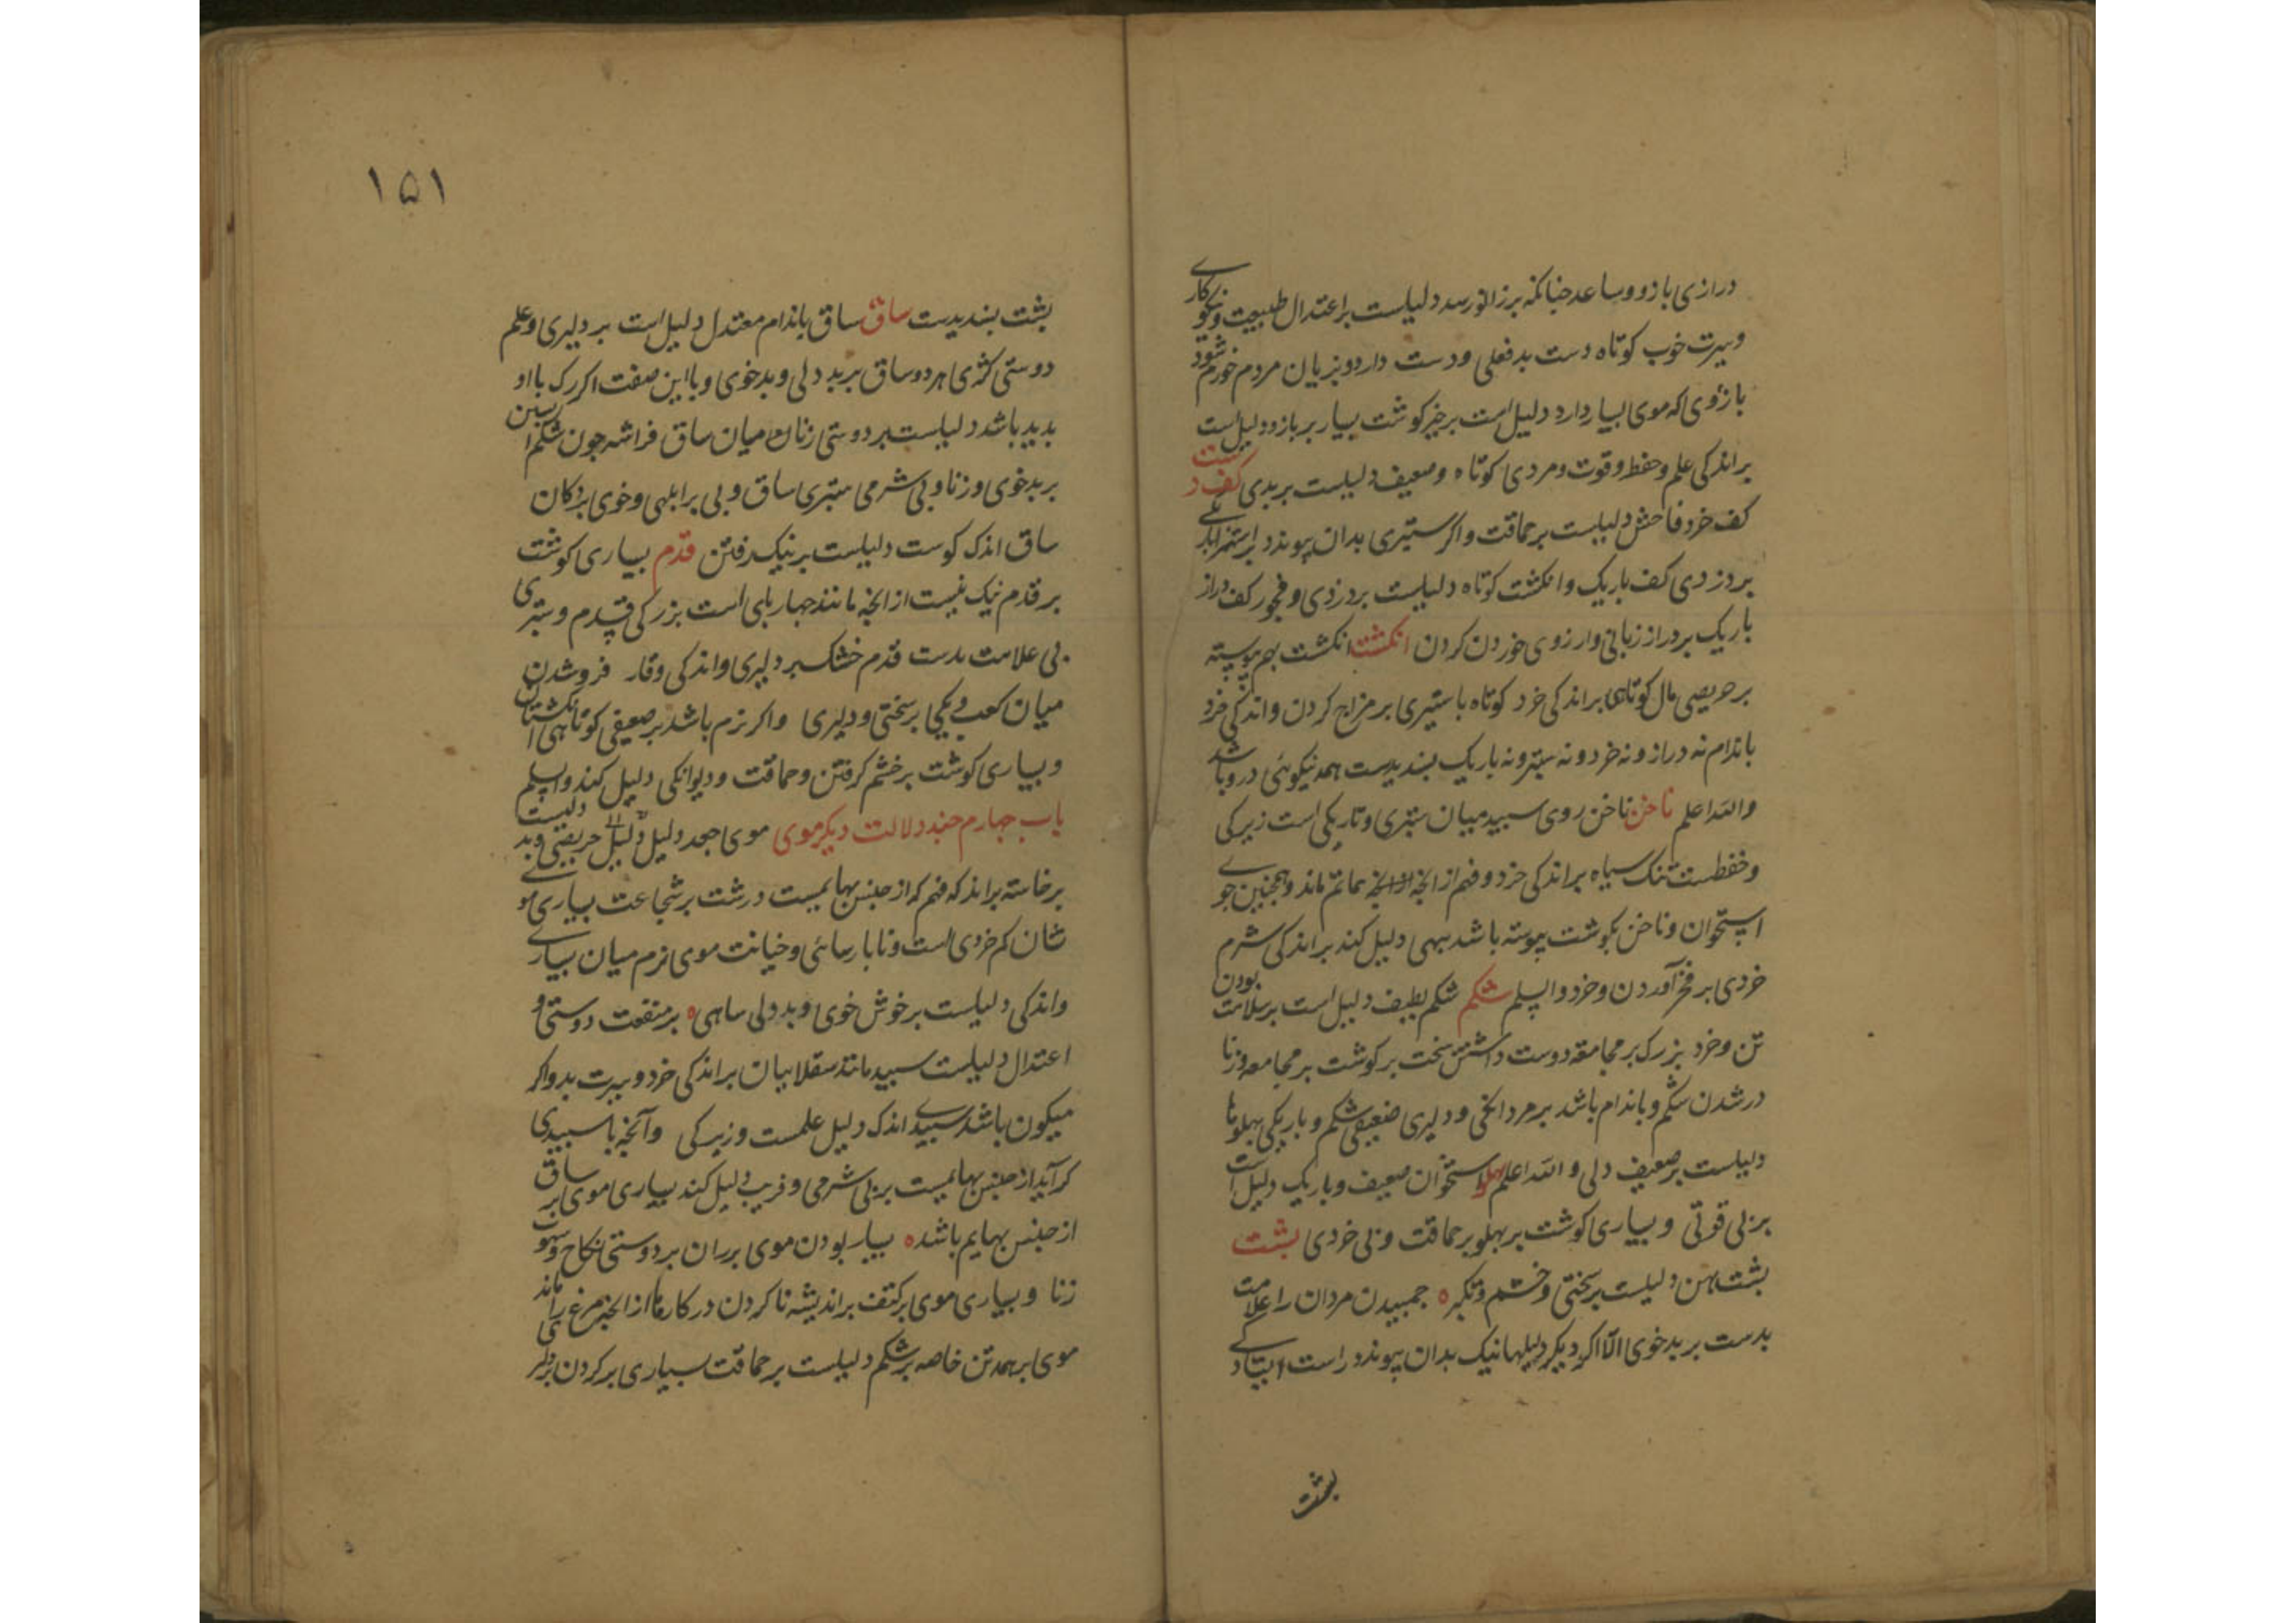 درازی بازو و ساعد جنانکه برزانو رسد دلیلست بر اعتدال طبیعت و نیکو کاری
و سیرت خوب کوتاه دست بدفعلی و دست دارد و بزیان مردم خورم شود
بازوی که موی بسیار دارد دلیل است بر خیر کوشت بسیار بر بازو دلیل است
بر اندکی علم و حفظ و قوت و مردی کوتاه و ضعیف دلیلست بر بدی کف دست
کف خرد فاحش دلیلست بر حماقت و اکر ستبری بدان پیوندد
بر دزدی کف باریک و انکشت کوتاه دلیلست بر دزدی و فجور کف دراز
باریک بر دراز زبانی و ارزوی خوردن کردن انکشت انکشت بهم پیوسته
بر حریصی مال کوتاهی بر اندکی خرد کوتاه با ستبری بر مزاج کردن و اندکی خرد
باندام نه دراز و نه خرد و نه ستبر و نه باریک بسندیدست همه نیکوئی درو باشد
والله اعلم ناخن ناخن روی سبید میان ستبری و تاریکی است زیرکی
و حفظست تنک سیاه بر اندکی خرد و فهم از انچه بهائم ماند و همجنین جو
استخوان و ناخن بکوشت پیوسته باشد بهی دلیل کند بر اندکی شرم
خردی بر فخر آوردن و خرد والسلم شکم شکم لطیف دلیل است بر سلامت بودن
تن و خرد بزرک بر مجامعة دوست داشتن سخت بر کوشت بر مجامعه و زنا
در شدن شکم و باندام باشد بر مردانکی و دلیری ضعیفی شکم و باریکی بهلوها
دلیلست بر ضعیف دلی والله اعلم بهلو استخوان ضعیف و باریک دلیل است
بر بی قوتی و بسیاری کوشت بر بهلو بر حماقت و بی خردی بشت
بشت بهن دلیلست بر سختی و خشم و تکبر ه جمبیدن مردان را علامت
بدست بر بدخوی الا اکر دیکر دلیلها نیک بدان پیوندد راست ایستادکی
بشت
۱۵۱
بشت بسندیدست ساق ساق باندام معتدل دلیل است بر دلیری و علم
دوستی کژی هر دو ساق بر بد دلی و بدخوی و با این صفت اکر رک با او
بدید باشد دلیلست بر دوستی زنان میان ساق فراشه جون شکم
بر بدخوی و زنا و بی شرمی ستبری ساق و بی بر ابلهی و خوی بردکان
ساق اندک کوست دلیلست بر نیک رفتن قدم بسیاری کوشت
بر قدم نیک نیست از انچه مانند جهاربای است بزرکی قدم و ستبری
بی علامت بدست قدم خشک بر دلیری و اندکی وقار فروشدن
میان کعب و بکی بر سختی و دلیری و اکر نرم باشد بر ضعیفی کوتاهی انکشتان
و بسیاری کوشت بر خشم کرفتن و حماقت و دیوانکی دلیل کند والسلم
باب جهارم جند دلالت دیکر موی موی جعد دلیل دلیل حریصی و بد دلیست
برخاسته بر اندکه فهم که از جنس بهایمیست درشت بر شجاعت بسیاری مو
نشان کم خردی است و نابارسائی و خیانت موی نرم میان بسیاری
و اندکی دلیلست بر خوش خوی و بد دلی ساهی ه بر منفعت دوستی و
اعتدال دلیلست سبید مانند سقلابیان بر اندکی خرد و سیرت بد و اکر
میکون باشد سبیدی اندک دلیل علمست و زیرکی و آنچه با سبیدی
کر آید از جنس بهایمیست بر بی شرمی و فریب دلیل کند بسیاری موی بر ساق
از جنس بهایم باشد ه بسیار بودن موی بر ران بر دوستی نکاح و شهوت
زنا و بسیاری موی بر کتف بر اندیشه ناکردن در کارها از انچه مرغ را ماند
موی بر همه تن خاصه بر شکم دلیلست بر حماقت بسیاری بر کردن بر دلیری